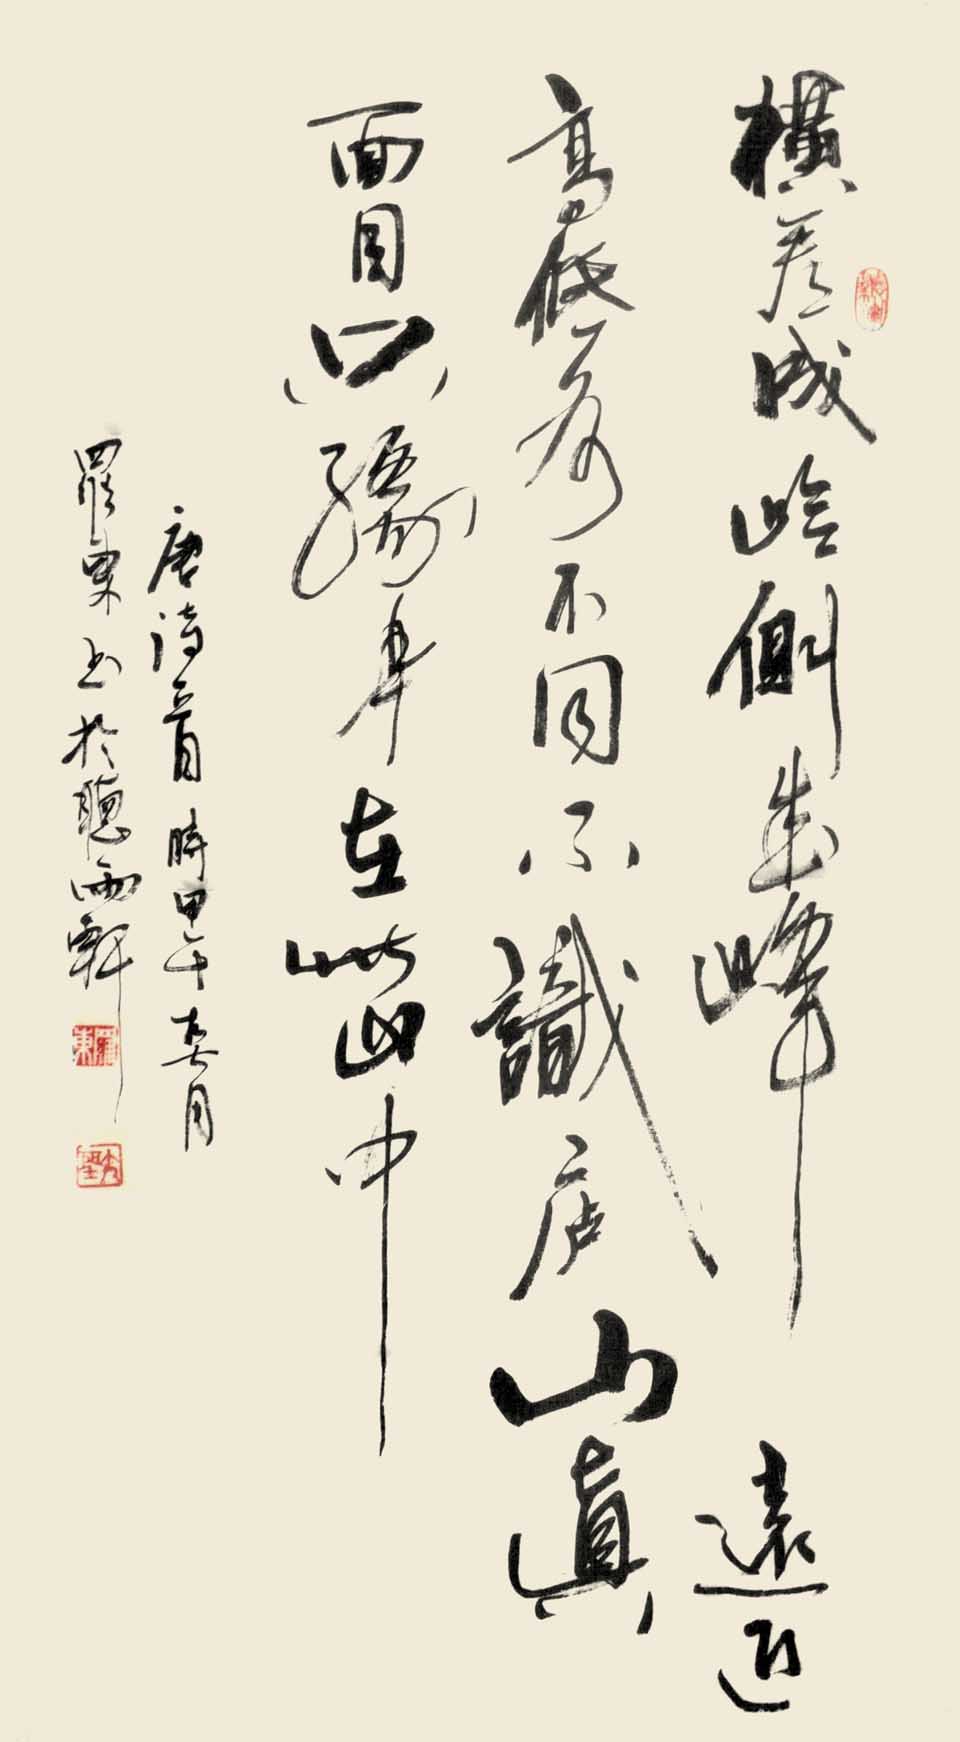 橫看成岭側成峰遠近
高低各不同不識庐山真
面目只緣身在此山中
唐詩一首時甲午春月
羅東书於聽雨軒
羅東